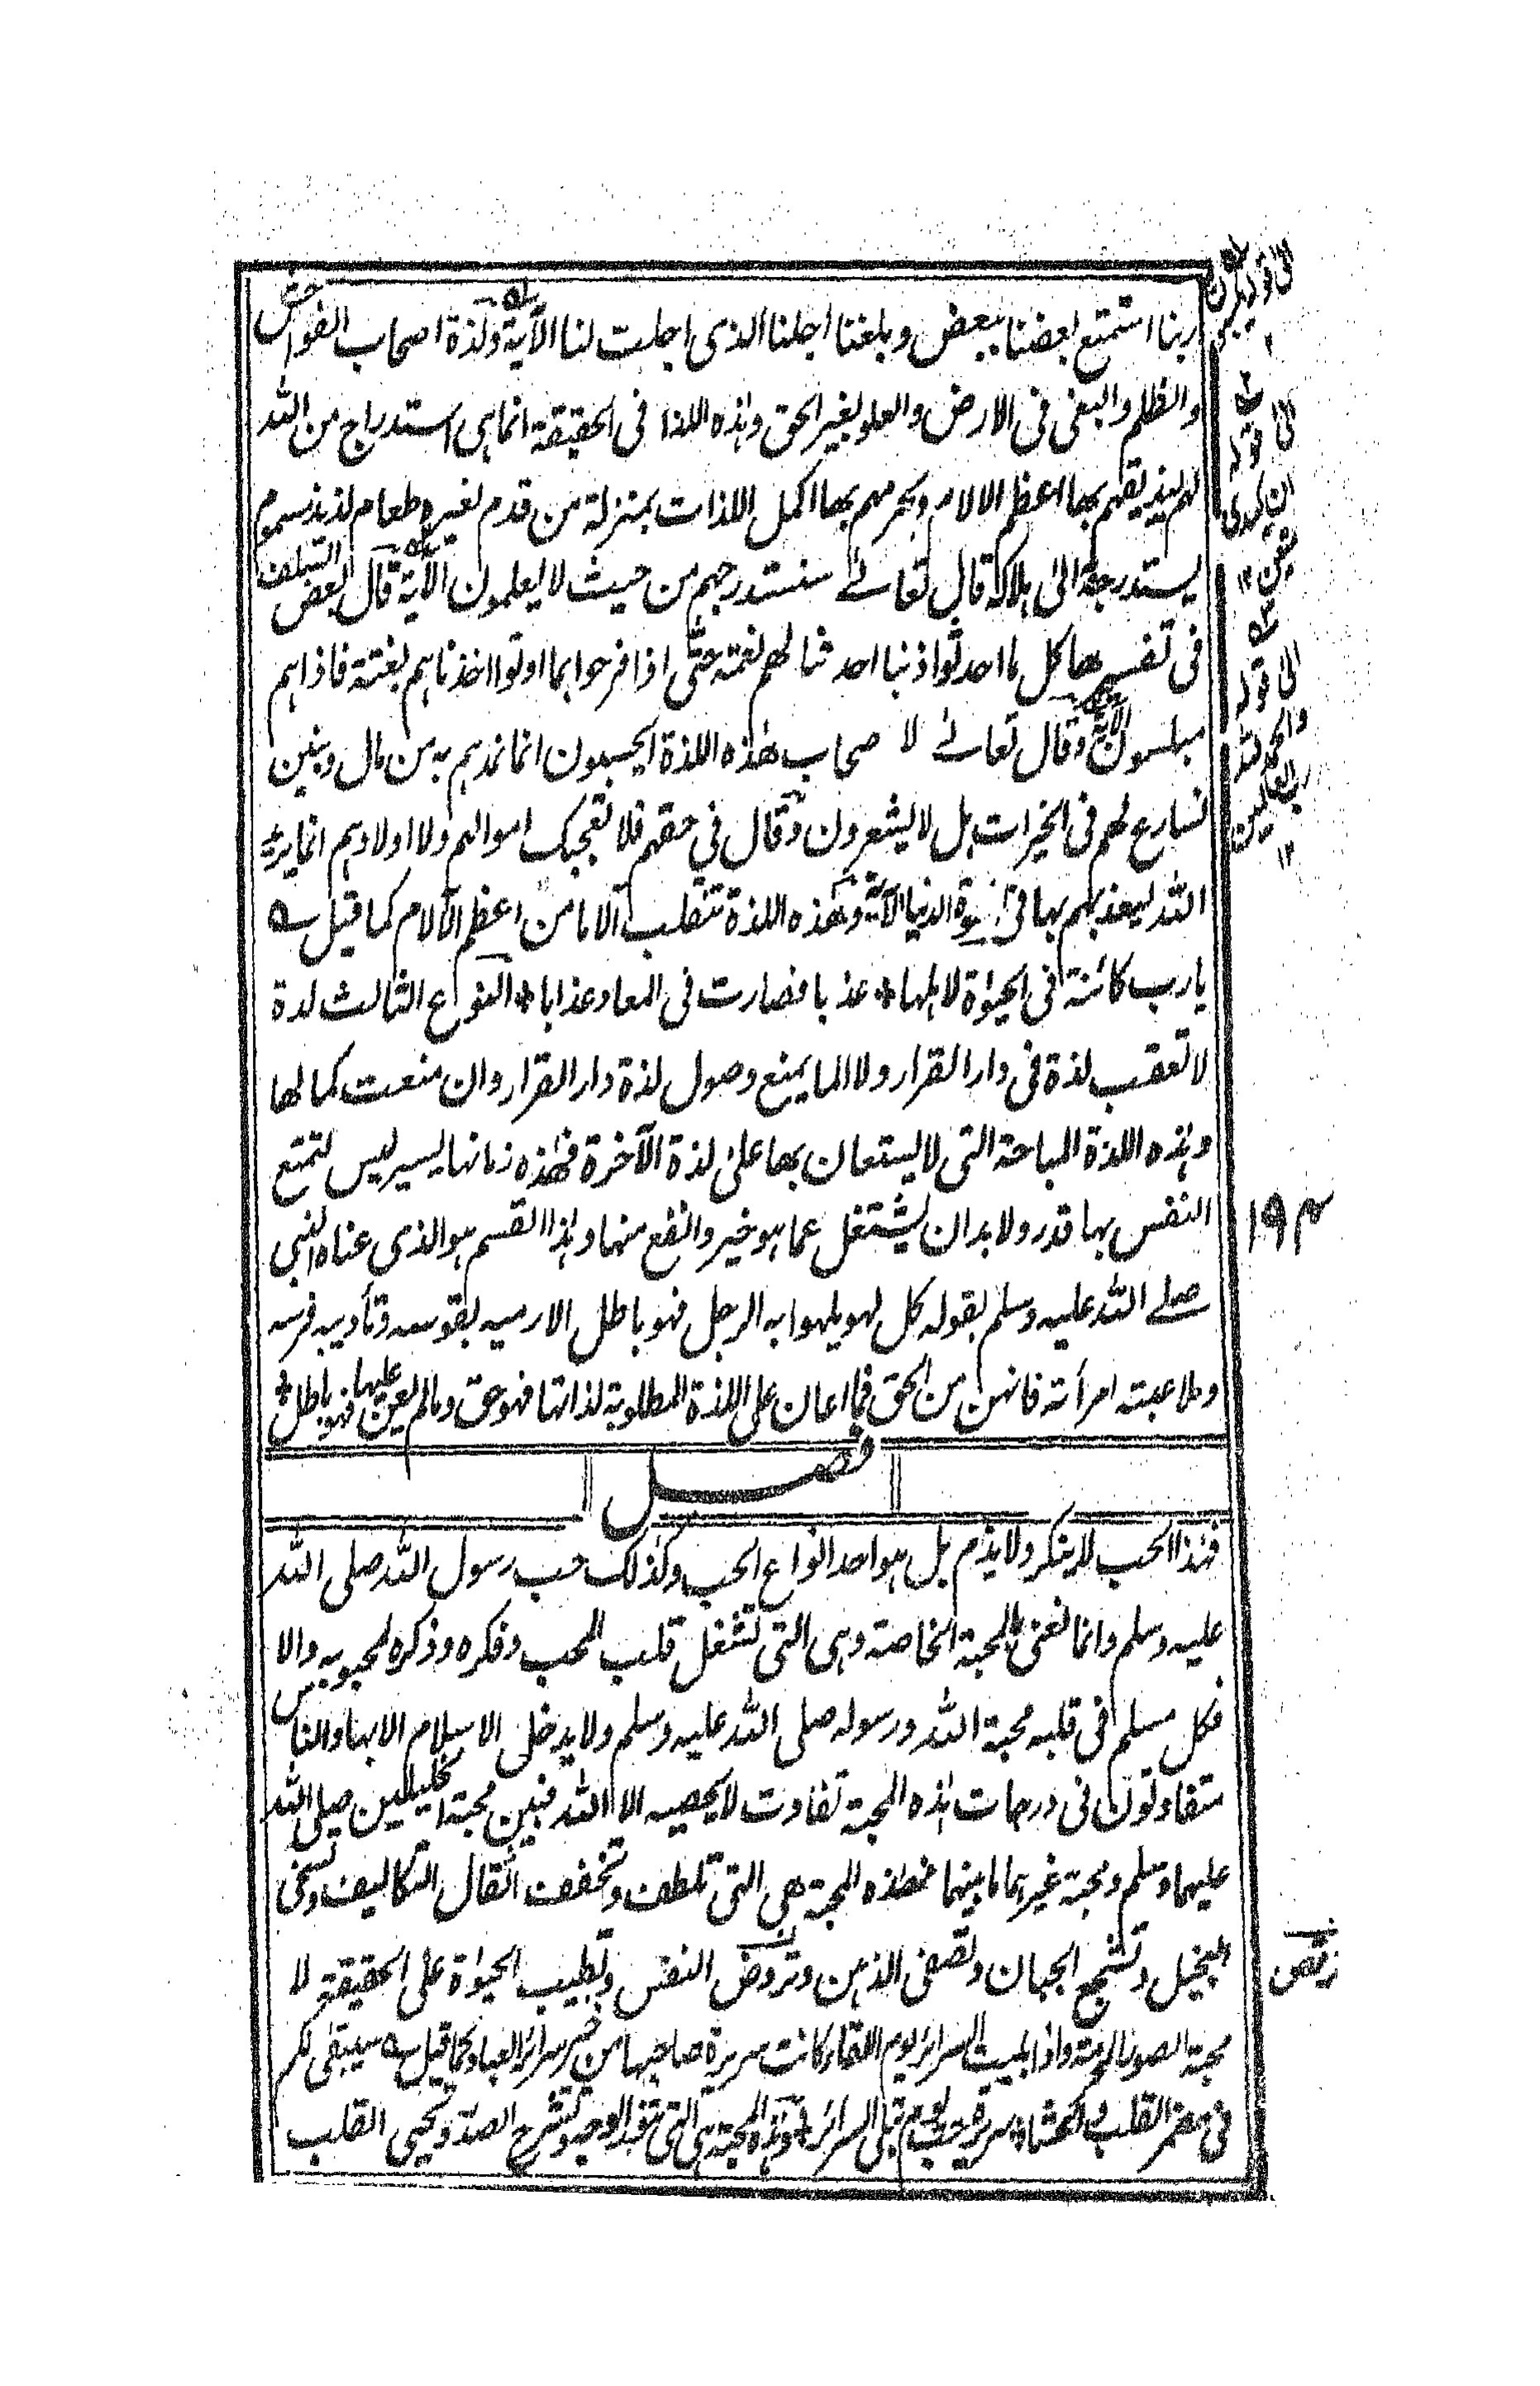 ربنا استمتع بعضنا ببعض وبلغنا اجلنا الذى اجلت لنا الآية ولذة اصحاب الفواحش
والظلم والبغى فى الارض والعلو بغير الحق وهذه اللذا فى الحقيقة انماهى استدراج من الله
لهم ليذيقهم بها اعظم الالام ويحرمهم بها اكمل اللذات بمنزلة من قدم لغيره طعام لذيذ مسموم
يستدرجه الى هلاكه قال تعالے سنستدرجهم من حيث لا يعلمون الآية قال بعض السلف
فى تفسيرها كل ما احدثوا ذنبا احدثنا لهم نعمة حتى اذا فرحوا بما اوتوا اخذناهم بغتة فاذاهم
مبلسون الآية وقال تعالے لا صحاب هذه اللذة ايحسبون انما نمدهم به من مال وبنين
نسارع لهم فى الخيرات بل لا يشعرون وقال فى حقهم فلا تعجبك اموالهم ولا اولادهم انما يريد
الله ليعذبهم بها فى الحيوة الدنيا الآية وهذه اللذة تنقلب آلاما من اعظم الآلام كما قيل ؎
يارب كائنة فى الحيوة لاهلها * عذبا فصارت فى المعاد عذابا * النوع الثالث لذة
لا تعقب لذة فى دار القرار ولا الما يمنع وصول لذة دار القرار وان منعت كمالها
وهذه اللذة المباحة التى لا يستعان بها على لذة الآخرة فهذه زمانها يسير ليس لتمتع
النفس بها قدر ولا بد ان يشتغل عما هو خير وانفع منها وهذا القسم هو الذى عناه النبى
صلے الله عليه وسلم بقوله كل لهو يلهوا به الرجل فهو باطل الا رميه بقوسه وتأديبه فرسه
وملاعبته امرأته فانهن من الحق فما اعان على اللذة المطلوبة لذاتها فهو حق وما لم يعن عليها فهو باطل *
فصل
فهذا الحب لا ينكر ولا يذم بل هو احد انواع الحب وكذلك حب رسول الله صلى الله
عليه وسلم وانما نعنى المحبة الخاصة وهى التى تشغل قلب المحب وفكره وذكره لمحبوبه والا
فكل مسلم فى قلبه محبة الله ورسوله صلى الله عليه وسلم ولا يدخل الاسلام الا بها والناس
متفاوتون فى درجات هذه المحبة تفاوت لا يحصيه الا الله فبين محبة الخليلين صلى الله
عليهما وسلم ومحبة غيرهما ما بينهما فهذه المحبة هى التى تلطف وتخفف اثقال التكاليف وتسخى
البخيل وتشجع الجبان وتصفى الذهن وتروض النفس وتطيب الحيوة على الحقيقة لا
محبة الصور المحرمة واذا بليت السرائر يوم اللقاء كانت سريرة صاحبها من خير سرائر العباد كما قيل ؎ سيبقى لكم
فى مضمر القلب والحشا * سريرة حب يوم تبلى السرائر * وهذه المحبة هى التى تنور الوجه وتشرح الصدر وتحيى القلب
الى قوله
الى قوله
ان كيدى
متين ١٢
الى قوله
والحمد لله
رب العلمين
١٢
١٩٣